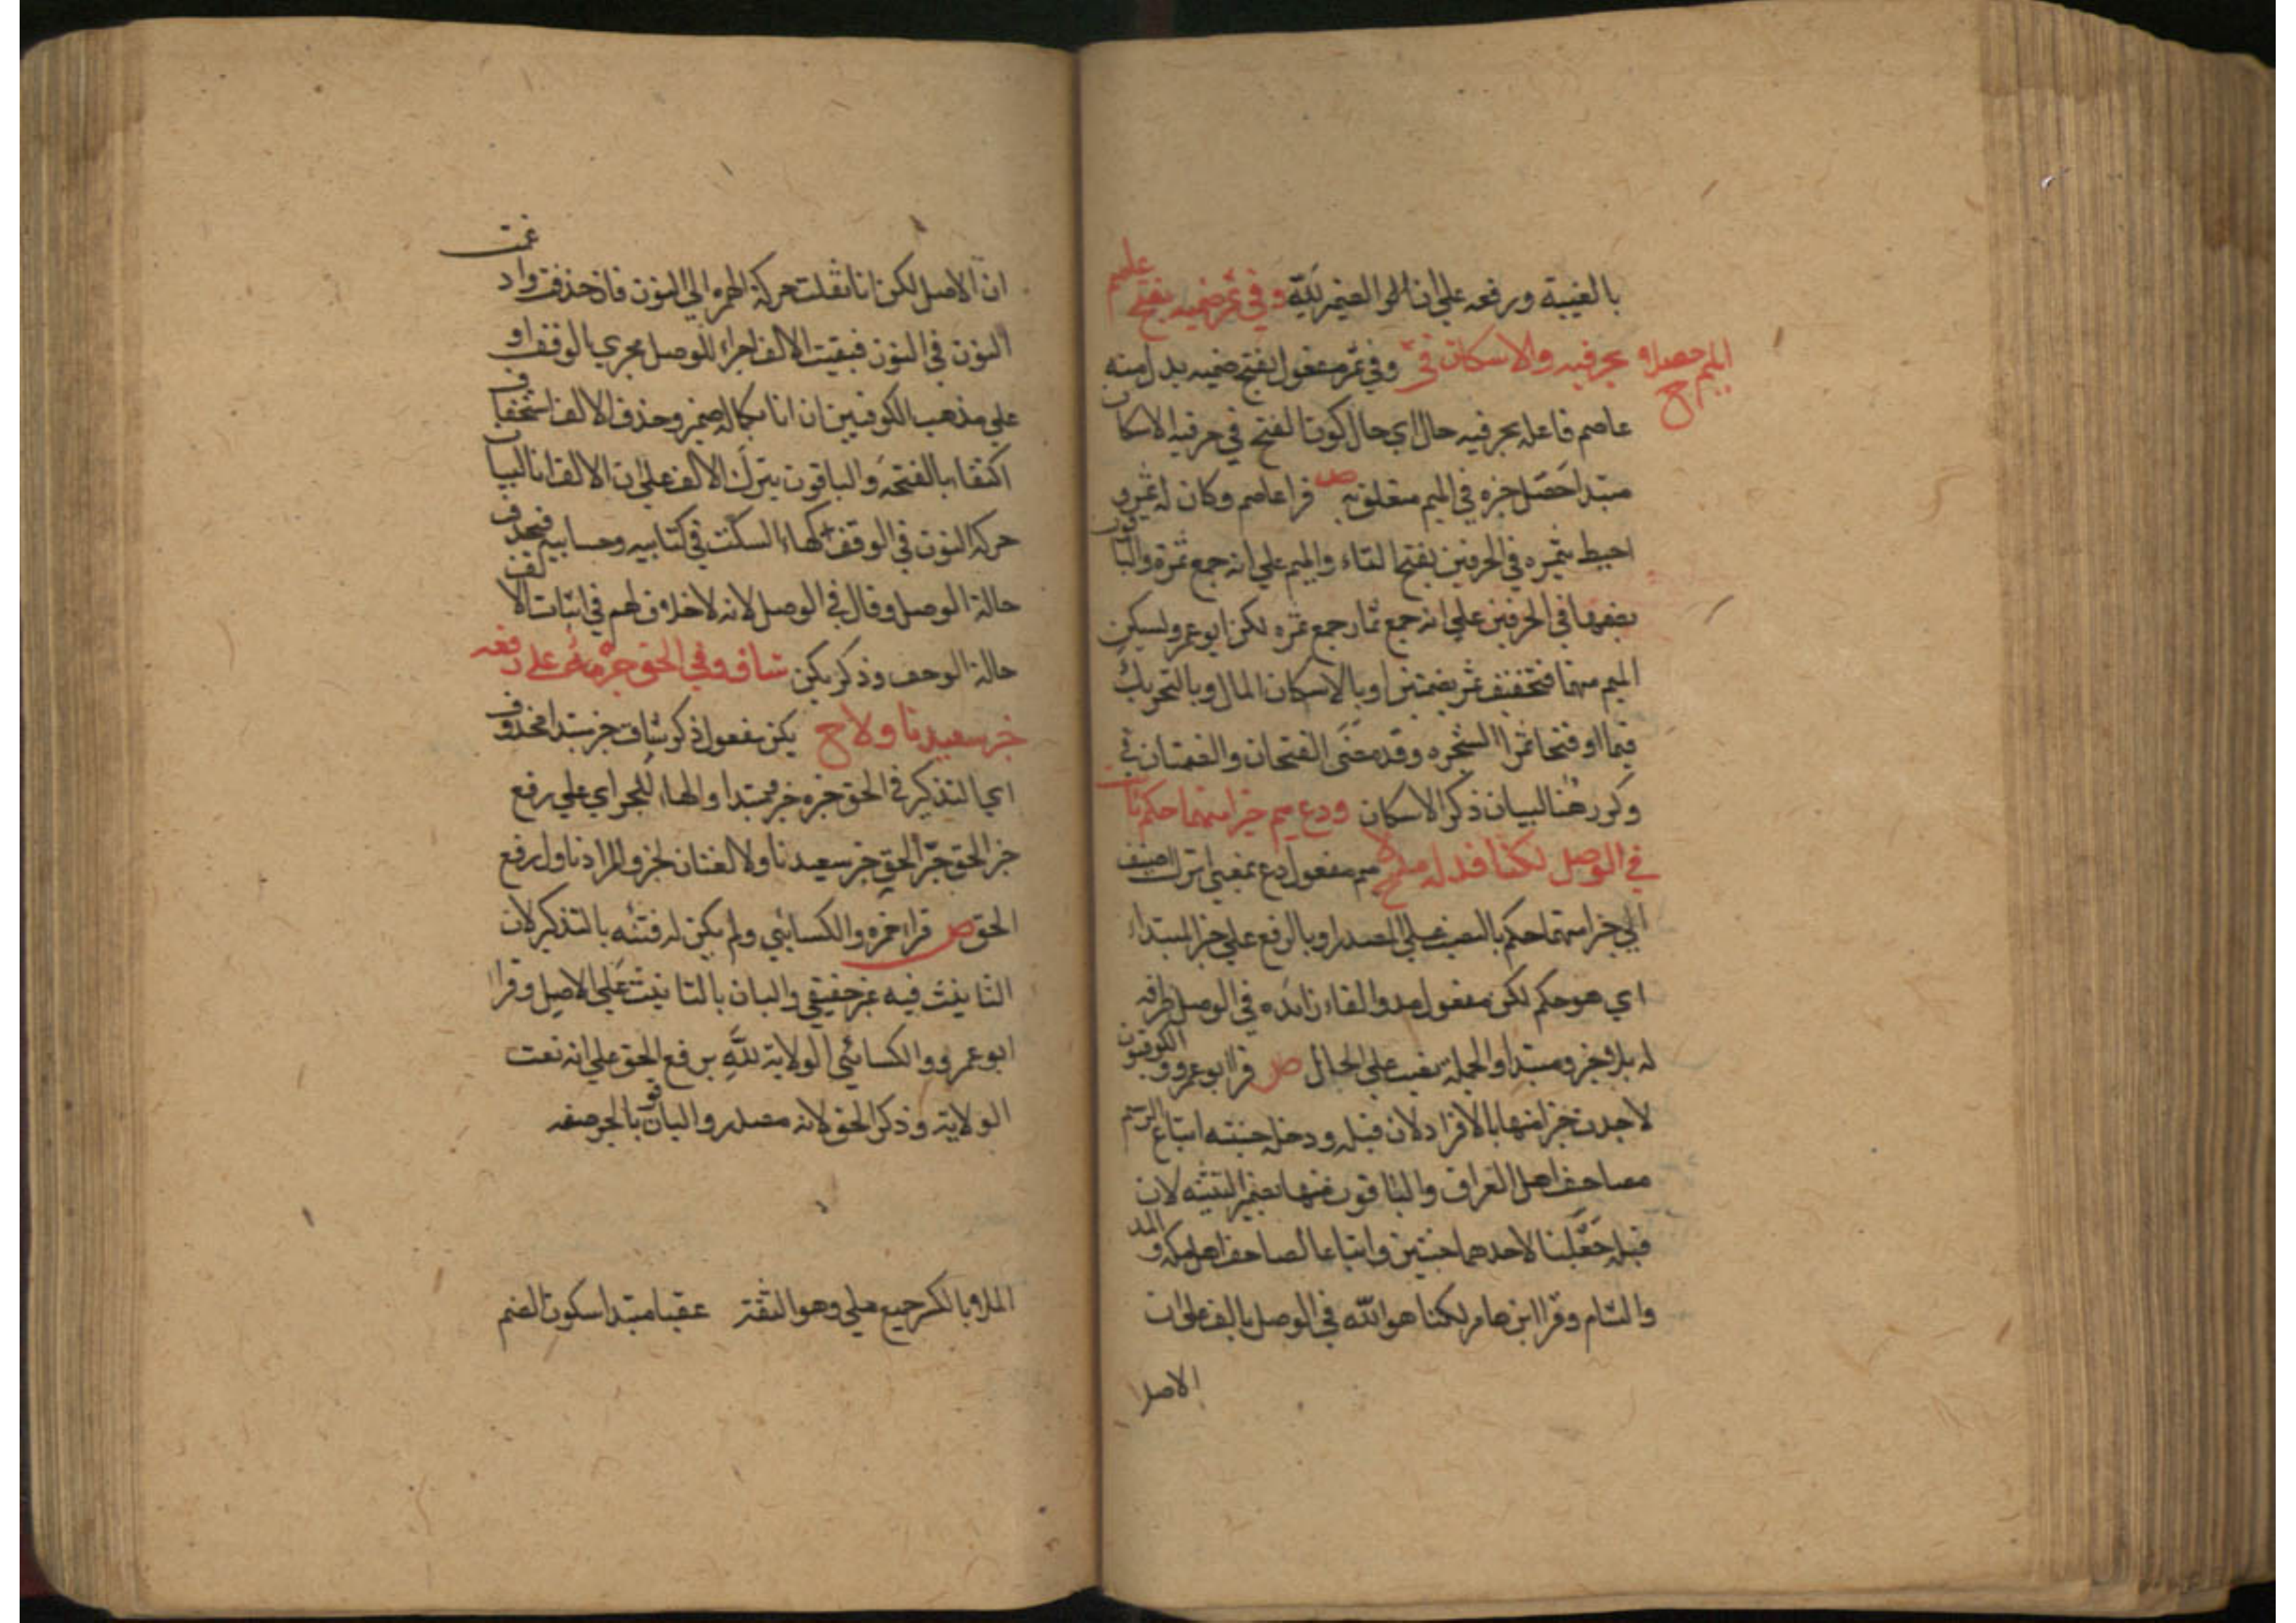 بالغيبة ورفعه على ان لا الضمير لله وفي ثمر ضميه يفتح عاصم
بحرفيه والاسكان في الميم حصلا ح وفي ثمر مفعول يفتح ضميه بدل منه
عاصم فاعله بحرفيه حال اي حال كون الفتح في حرفيه الاسكان
مبتدا حصل خبره في الميم متعلق به ص قرا عاصم وكان له ثمر و
احيط بثمره في الحرفين بفتح الثاء والميم على انه جمع ثمرة والباقون
بضمها في الحرفين على انه جمع ثمار جمع ثمره لكن ابو عمرو يسكن
الميم منهما فتخفيف ثمر بضمتين او بالاسكان المال وبالتحريك
فيما او فتحا ثمر الشجره وقد مضى الفتحان والضمتان في
وكرر هنا لبيان ذكر الاسكان ودع ميم خيرا منهما حكم ثابت
في الوصل لكنا فمد له ملا ح ميم مفعول دع بمعنى اترك اضيف
الى خيرا منهما حكم بالنصب على المصدر او بالرفع على خبر المبتداء
اي هو حكم لكن مفعول مد والفاء زائده في الوصل ظرفه
له ملا خبر ومبتدا والجملة نصب على الحال ص قرا ابو عمرو والكوفيون
لاجدن خيرا منها بالافراد لان قبله ودخل جنته اتباع الرسم
مصاحف اهل العراق والباقون منهما بضمير التثنيه لان
قبله جعلنا لاحدهما جنتين واتباعا لمصاحف اهل مكه والمد
والشام وقرا ابن عامر لكنا هو الله في الوصل بالف على ان
الاصل
ان الاصل لكن انا نقلت حركة الهمزه الى النون فاذ حذفت وادغمت
النون في النون فبقيت الالف اجراء للوصل مجرى الوقف او
على مذهب الكوفيين ان انا بكماله ضمير وحذف الالف استخفاف
اكتفاء بالفتحه والباقون بترك الالف على ان الالف انا لبيان
حركة النون في الوقف كهاء السكت في كتابيه وحسابيه فيحذف
حالة الوصل وقال في الوصل لانه لا خلاف لهم في اثبات الالف
حالة الوحف وذكر يكن شاف وفي الحق جره على رفعه
خبر سعيد ناولا ح يكن مفعول ذكر شاف خبر مبتدا محذوف
اي التذكير في الحق جره خبر ومبتدا والهاء للجر اي على رفع
جر الحق جر الحق خبر سعيد ناولا لغتان لخبر والمراد ناول رفع
الحق ص قراء حمزه والكسائي ولم يكن له فئته بالتذكير لان
التانيث فيه غير حقيقي والباق بالتانيث على الاصل وقرا
ابو عمرو والكسائي الولاية لله برفع الحق على انه نعت
الولاية وذكر الحق لانه مصدر والباقون بالجر صفه
الملا وبالكسر جمع ملى وهو الثقة عقبا مبتدا سكون الضم